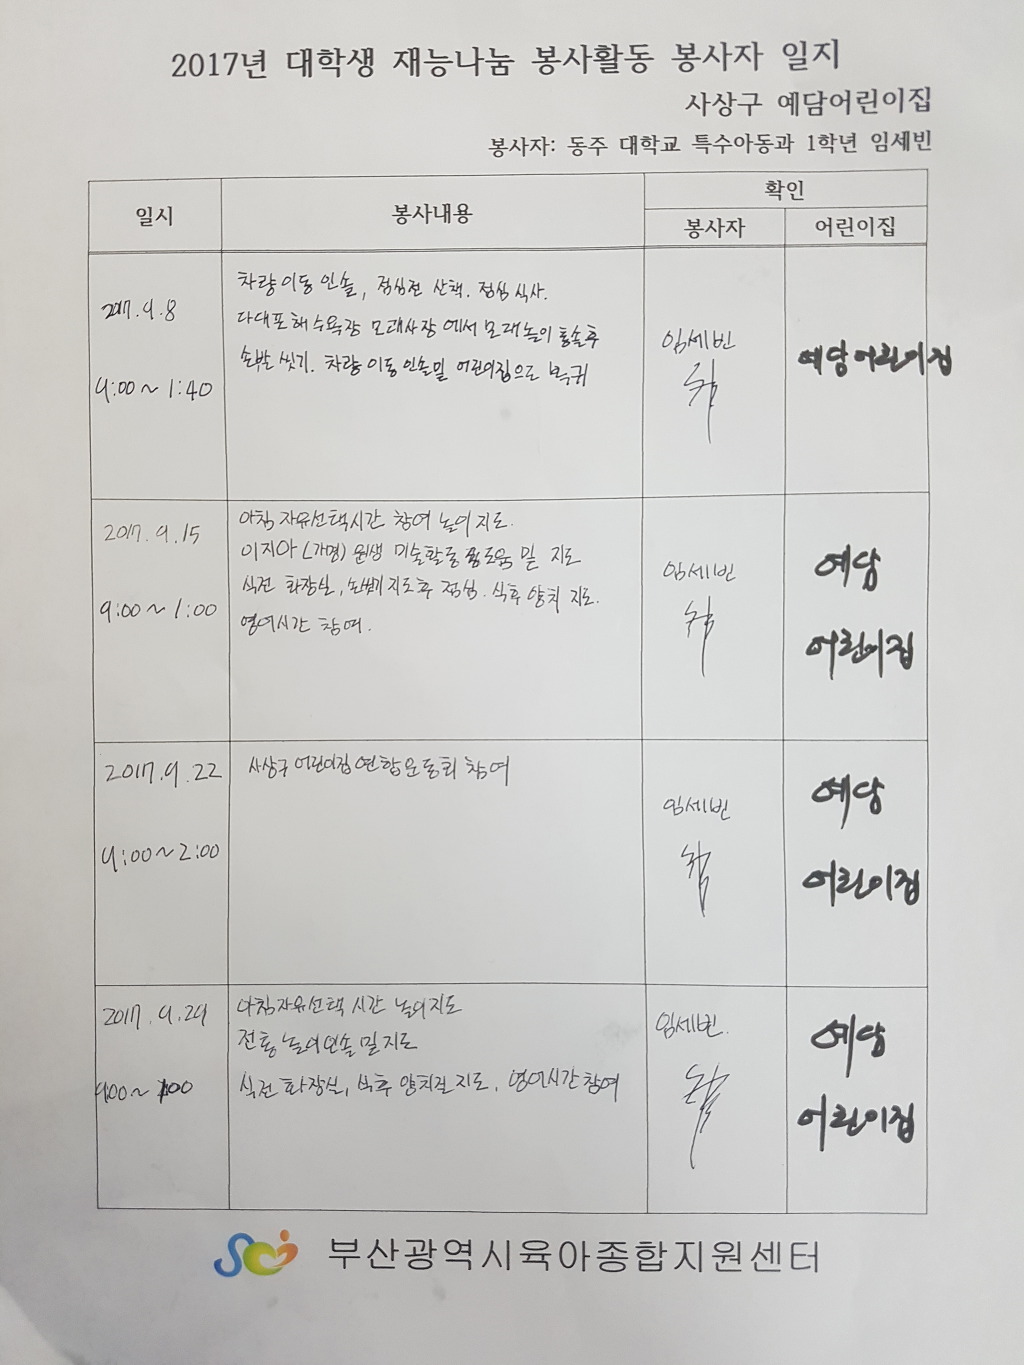 2017년 대학생 재능나눔 봉사활동 봉사자 일지
사상구 예담어린이집
봉사자: 동주 대학교 특수아동과 1학년 임세빈
일시
봉사내용
확인
봉사자
어린이집
2017.9.8
9:00~1:40
차량이동 인솔, 점심전 산책. 점심 식사.
다대포해수욕장 모래사장에서 모래놀이 통솔후
손발 씻기. 차량이동 인솔및 어린이집으로 복귀
임세빈
예담어린이집
2017.9.15
9:00~1:00
아침 자유선택시간 참여 놀이지도.
이지아(가명) 원생 미술활동 도움 및 지도
식전 화장실, 손씻기지도후 점심. 식후 양치 지도.
영어시간 참여.
임세빈
예담
어린이집
2017.9.22
9:00~2:00
사상구 어린이집 연합운동회 참여
임세빈
예담
어린이집
2017.9.29
9:00~1:00
아침자유선택 시간 놀이지도
전통놀이인솔 및지도
식전 화장실, 식후 양치질지도, 영어시간참여
임세빈.
예담
어린이집
부산광역시육아종합지원센터